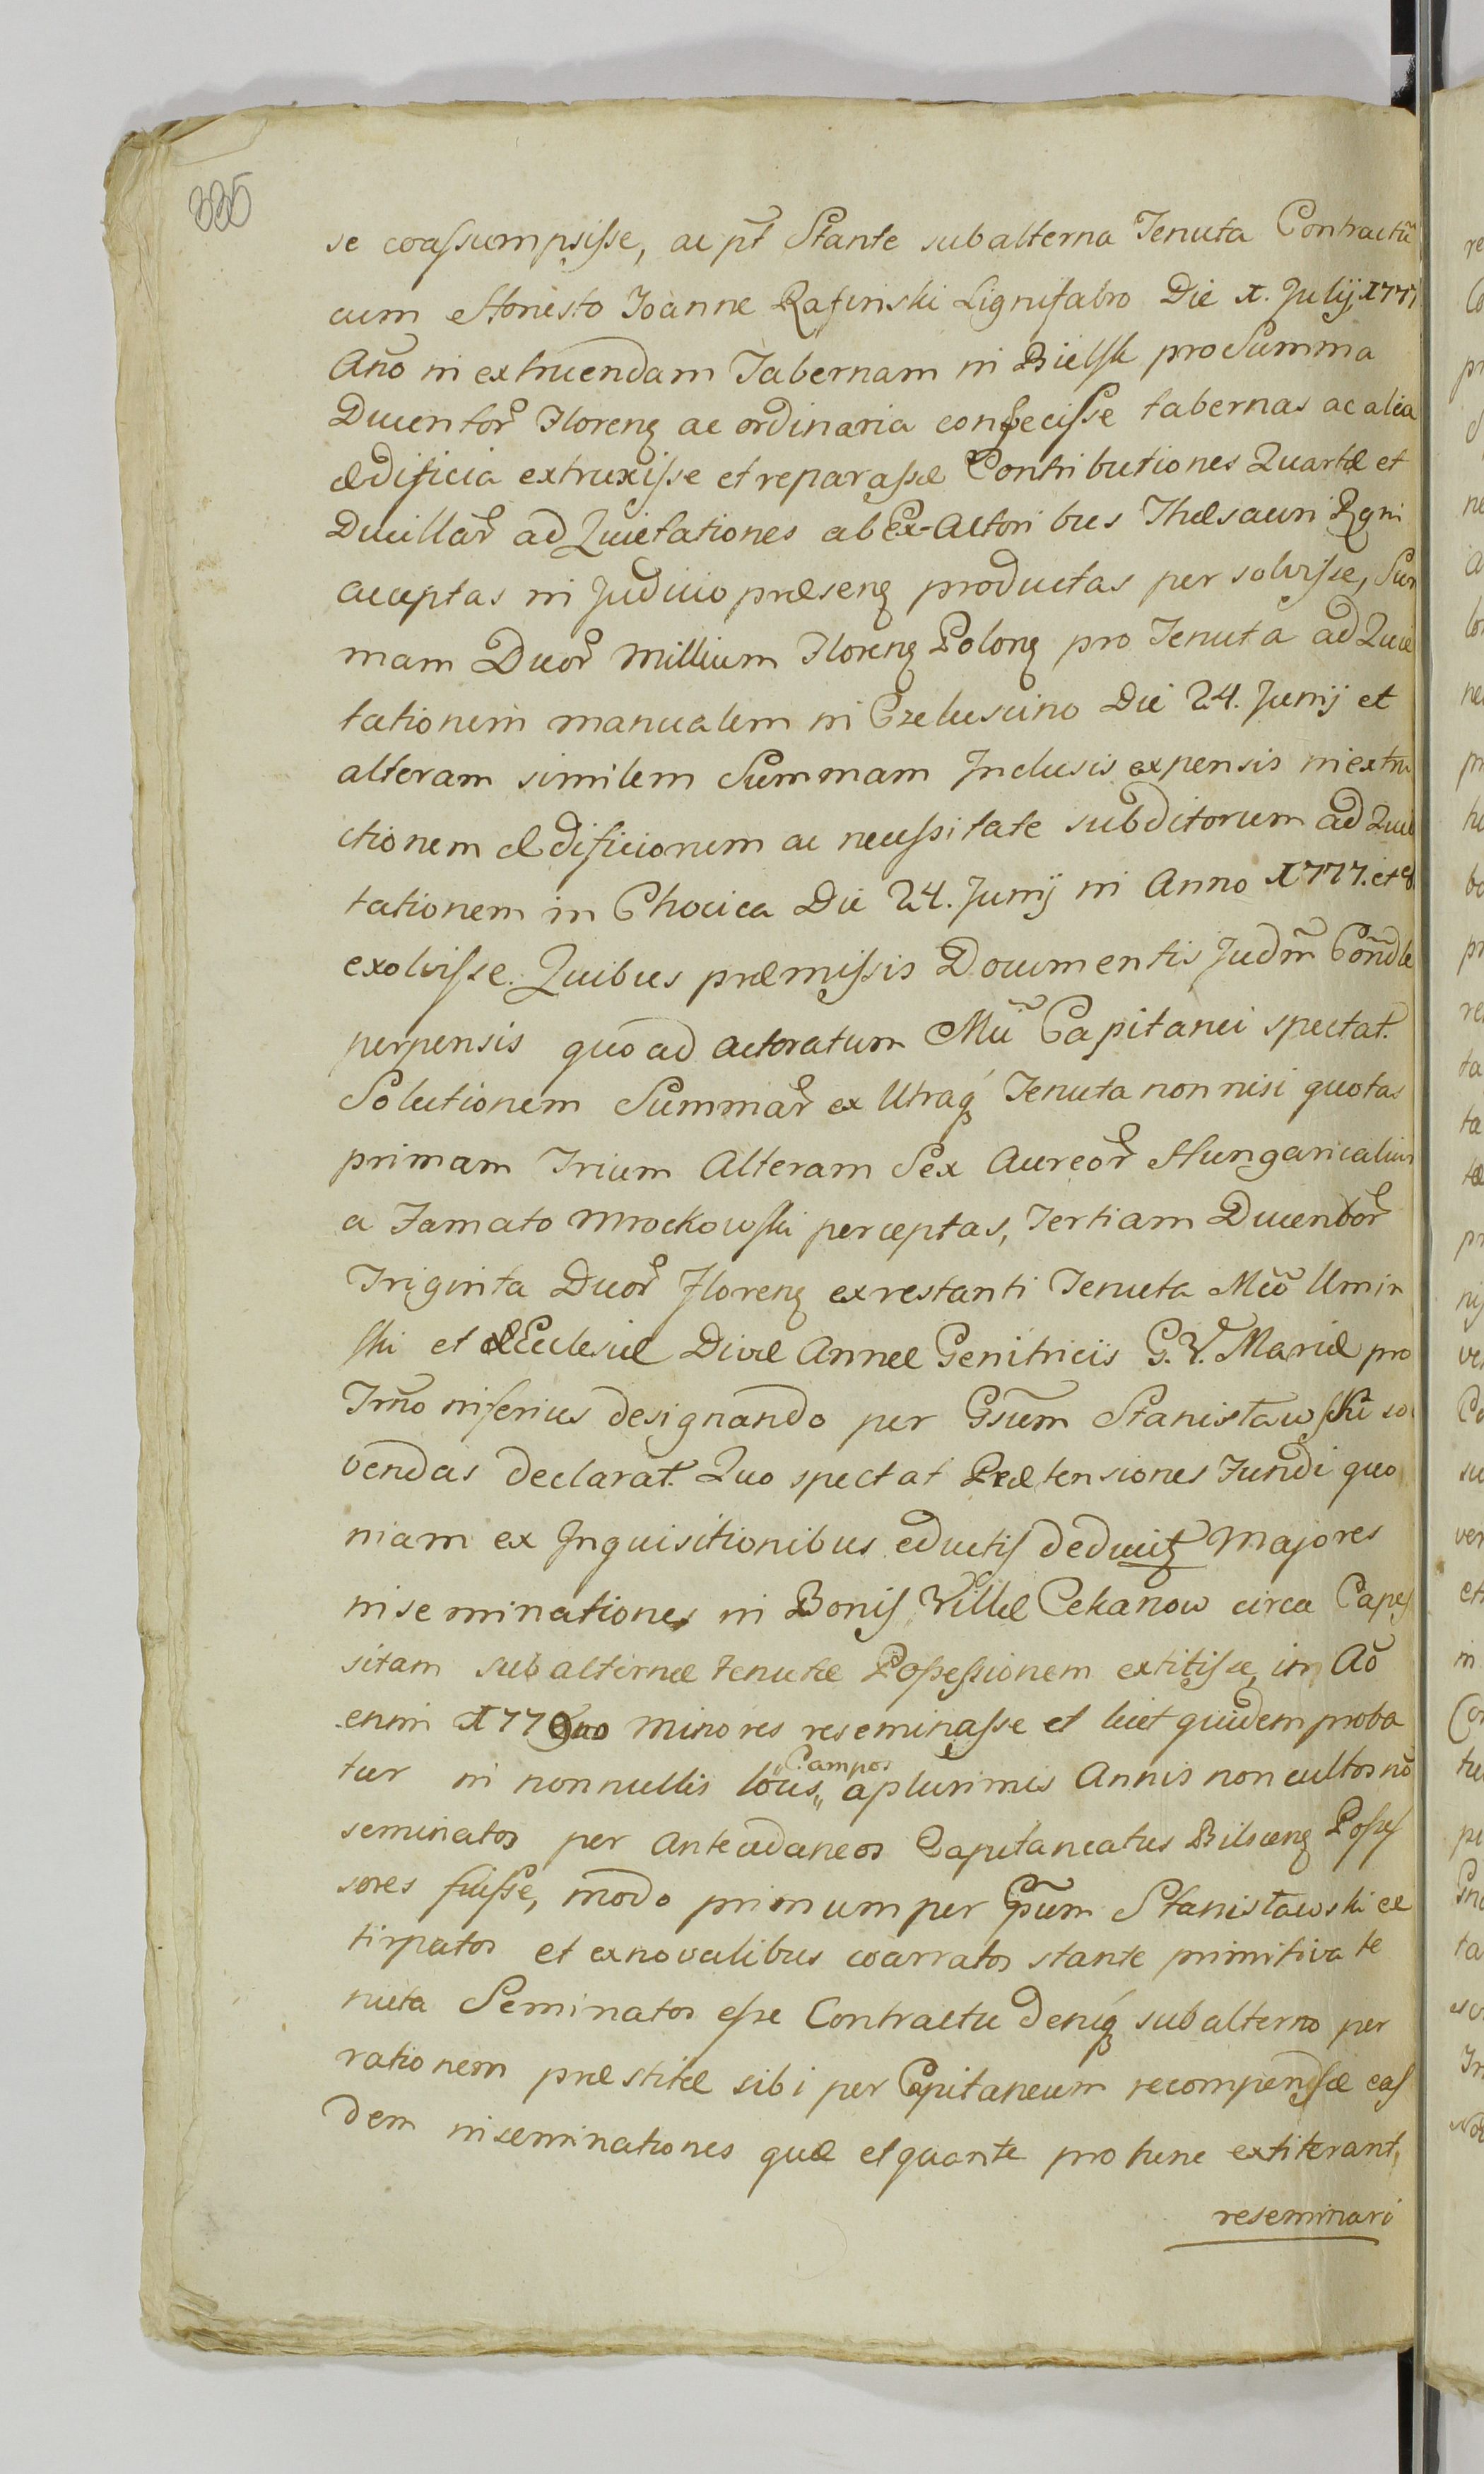 335
se coassumpsisse, ac pt̃ Stante subalterna Tenuta Contractũ
cum Honesto Joanne Rafinski Lignifabro Die X. Julij X777
Año in extruendam Tabernam in Bielsk pro Summa
Ducentor Floreng ac ordinaria confecisse tabernas ac alia
ædificia extruxisse et reparasse Contributiones Quartæ et
Ducillar ad Quietationes ab Ex-Actoribus Thesauri Regni
acceptas in Judicio præseng productas persolvisse, Sum
mam Duor Millium Floreng Polong pro Tenuta ad Quie
tationem manualem in Czeluscino Die 24. Junij et
alteram similem Summam Inclusis expensis in extru
ctionem ædificiorum ac necessitate subditorum ad Quie
tationem in Chocica Die 24. Junij in Anno X777. et
exolvisse. Quibus præmissis Documentis Judm̃ Cond̃le
perpensis quo ad actoratum Mũ Capitanei spectat.
Solutionem Summar ex Utraq́ Tenuta non nisi quotas
primam Trium Alteram Sex Aureor Hungaricalium
a Famato Mrockowski perceptas, Tertiam Ducentor
Triginta Duor Floreng ex restanti Tenuta Mco Umin
ski et Ecclesiæ Divæ Annæ Genitricis G. V. Mariæ pro
Tm̃o inferius designando per Gsum Stanisławskĩ sol
vendas declarat. Quo spectat Prætensiones Fundi quo
niam ex Inquisitionibus eductis deducitz Majores
inseminationes in Bonis Villæ Cekanow circa Capes
sitam subalternæ tenutæ Possessionem extitisse, in Aõ
enim X77 Quo minores reseminasse et licet quidem proba
tur in nonnullis locis „Campos„ a plurimis Annis non cultos nõ
seminatos per Antecedaneos Capitaneatus Bilsceng Posses
sores fuisse, modo primum per Gsum Stanisławski ex
tirpatos et ex novalibus coarratos stante primitiva te
nuta Seminatos esse Contractu deniq́ subalterno per
rationem præstitæ sibi per Capitaneum recompensæ eas
dem inseminationes quæ et quante pro tunc extiterant,
reseminari